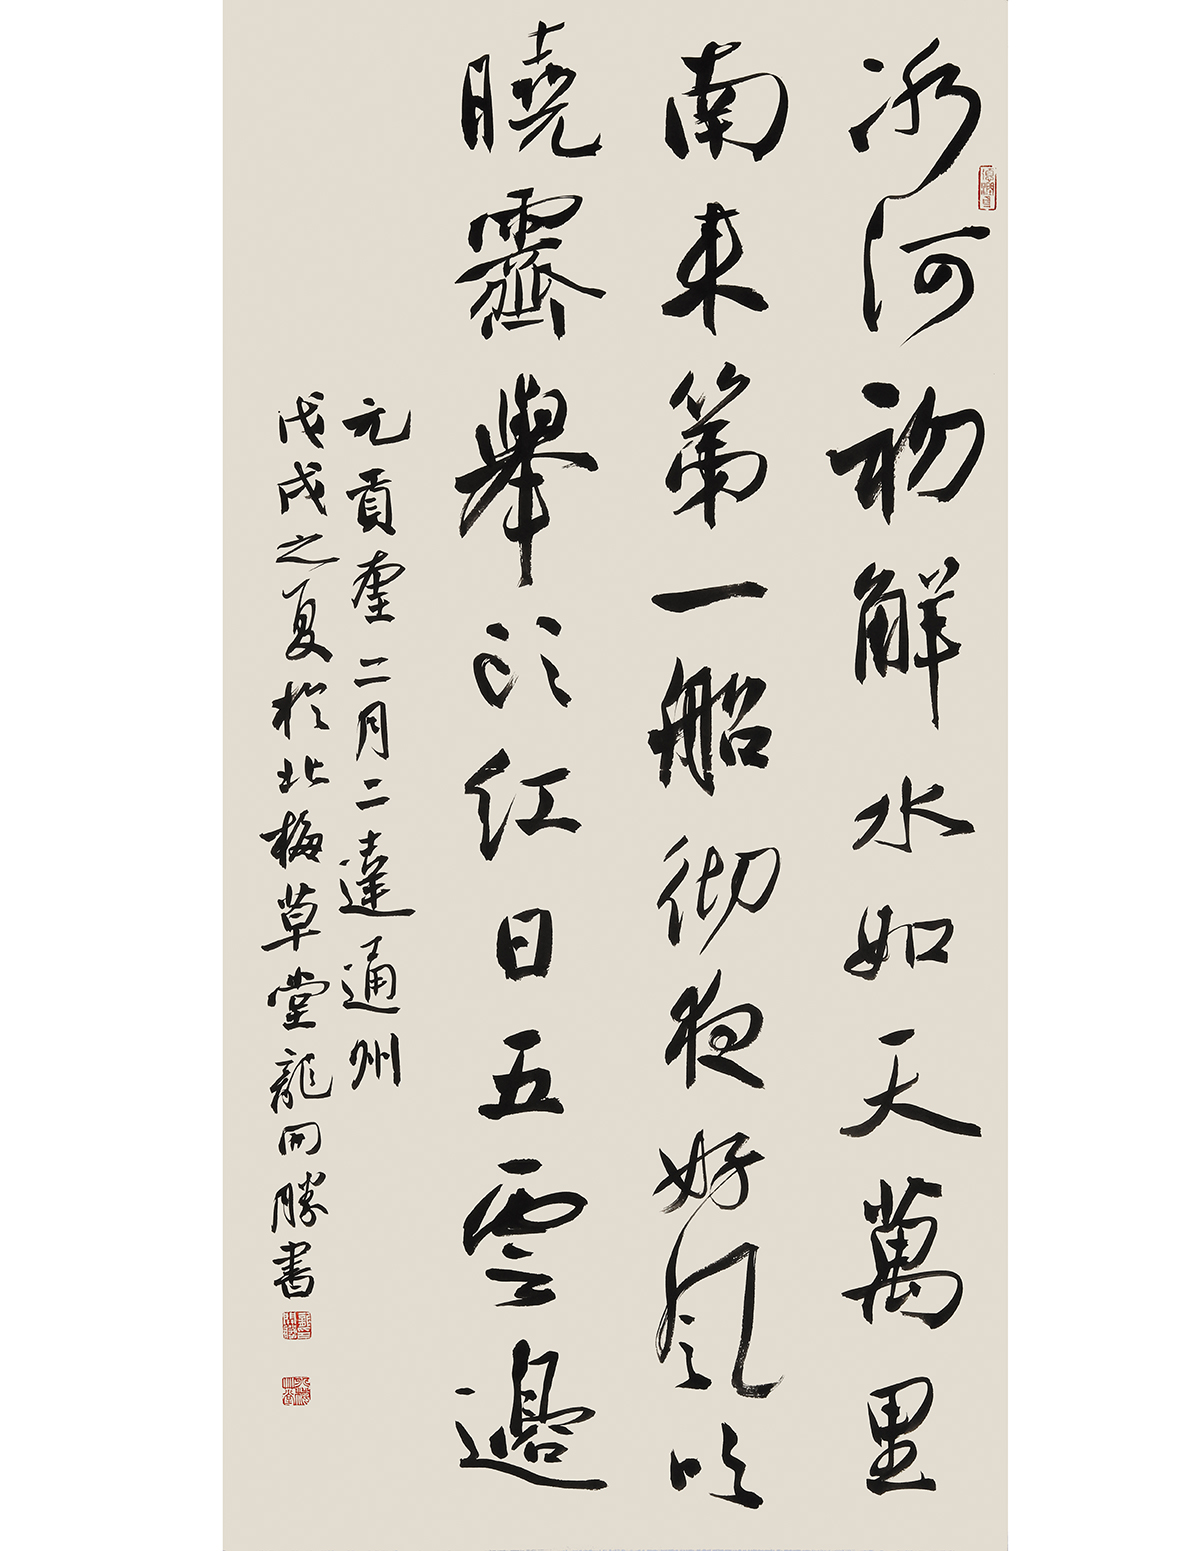 冰河初解水如天萬里
南来第一船彻夜好風吹
曉霽舉頭红日五雲邊
元貢奎二月二達通州
戊戌之夏於北梅草堂龍開勝書